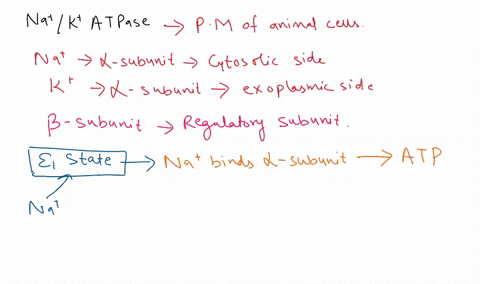 Na⁺/K⁺ ATPase → P.M of animal cells.
Na⁺ → α-subunit → Cytosolic side
K⁺ → α-subunit → exoplasmic side
β-subunit → Regulatory subunit.
Σ₁ State → Na⁺ binds α-subunit → ATP
Na⁺